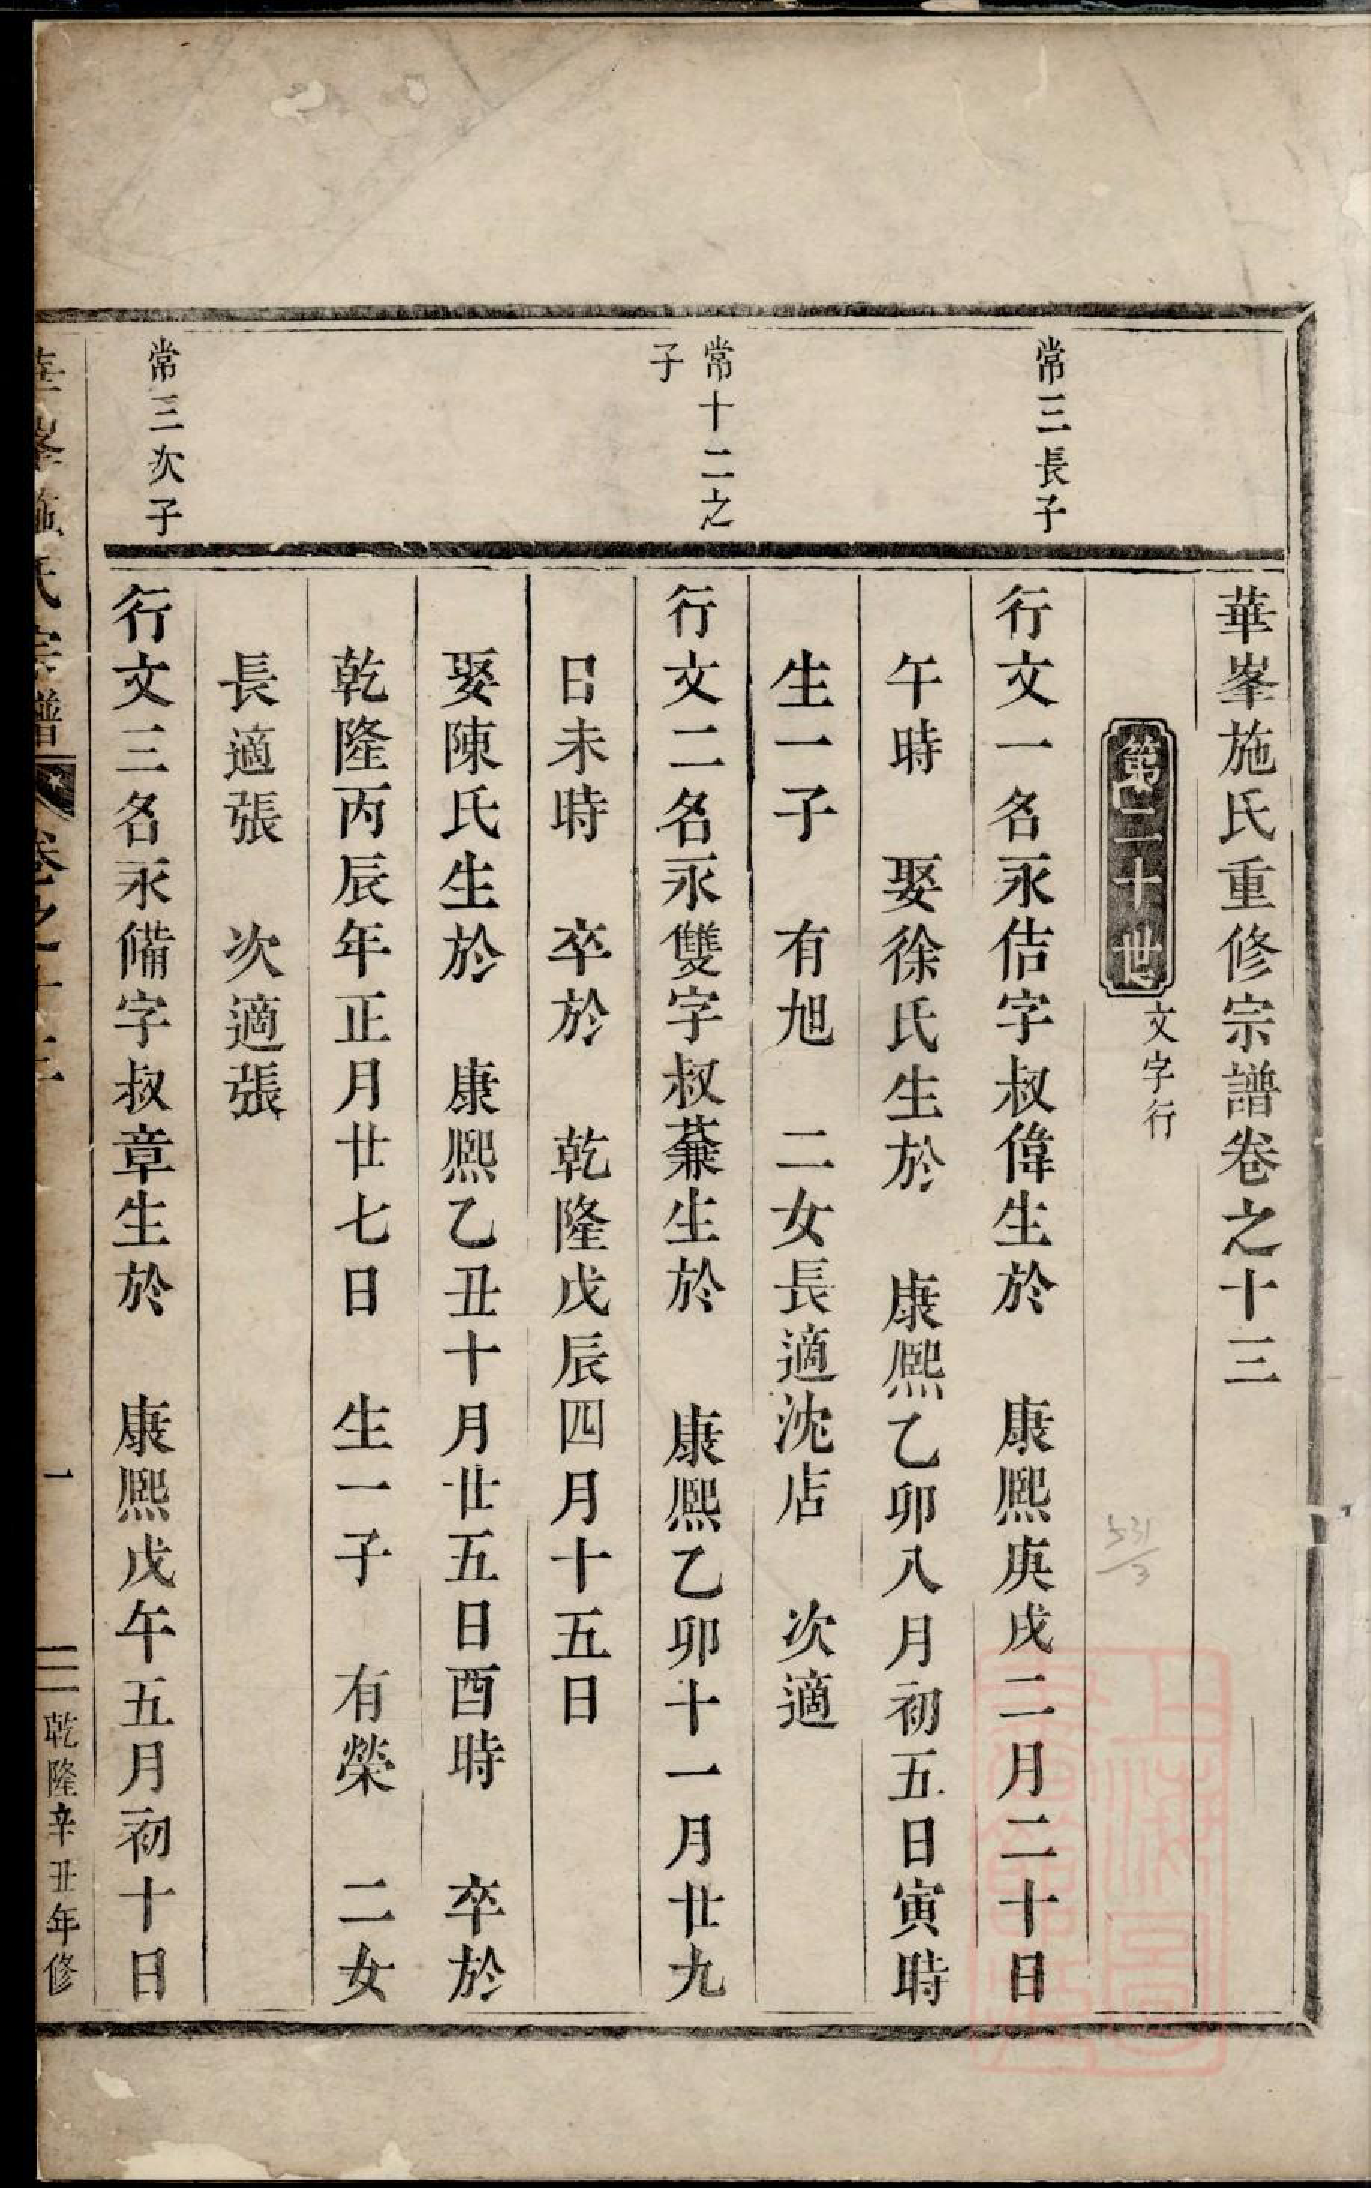 華峯施氏重修宗譜卷之十三
第二十世 文字行
常三長子
行文一名永佶字叔偉生於 康熙庚戌二月二十日
午時 娶徐氏生於 康熙乙卯八月初五日寅時
生一子 有旭 二女長適沈店 次適
常十二之
子
行文二名永雙字叔蒹生於 康熙乙卯十一月廿九
日未時 卒於 乾隆戊辰四月十五日
娶陳氏生於 康熙乙丑十月廿五日酉時 卒於
乾隆丙辰年正月廿七日 生一子 有榮 二女
長適張 次適張
常三次子
行文三名永備字叔章生於 康熙戊午五月初十日
華峯施氏宗譜 卷之十三 一 乾隆辛丑年修
上海圖
書館藏